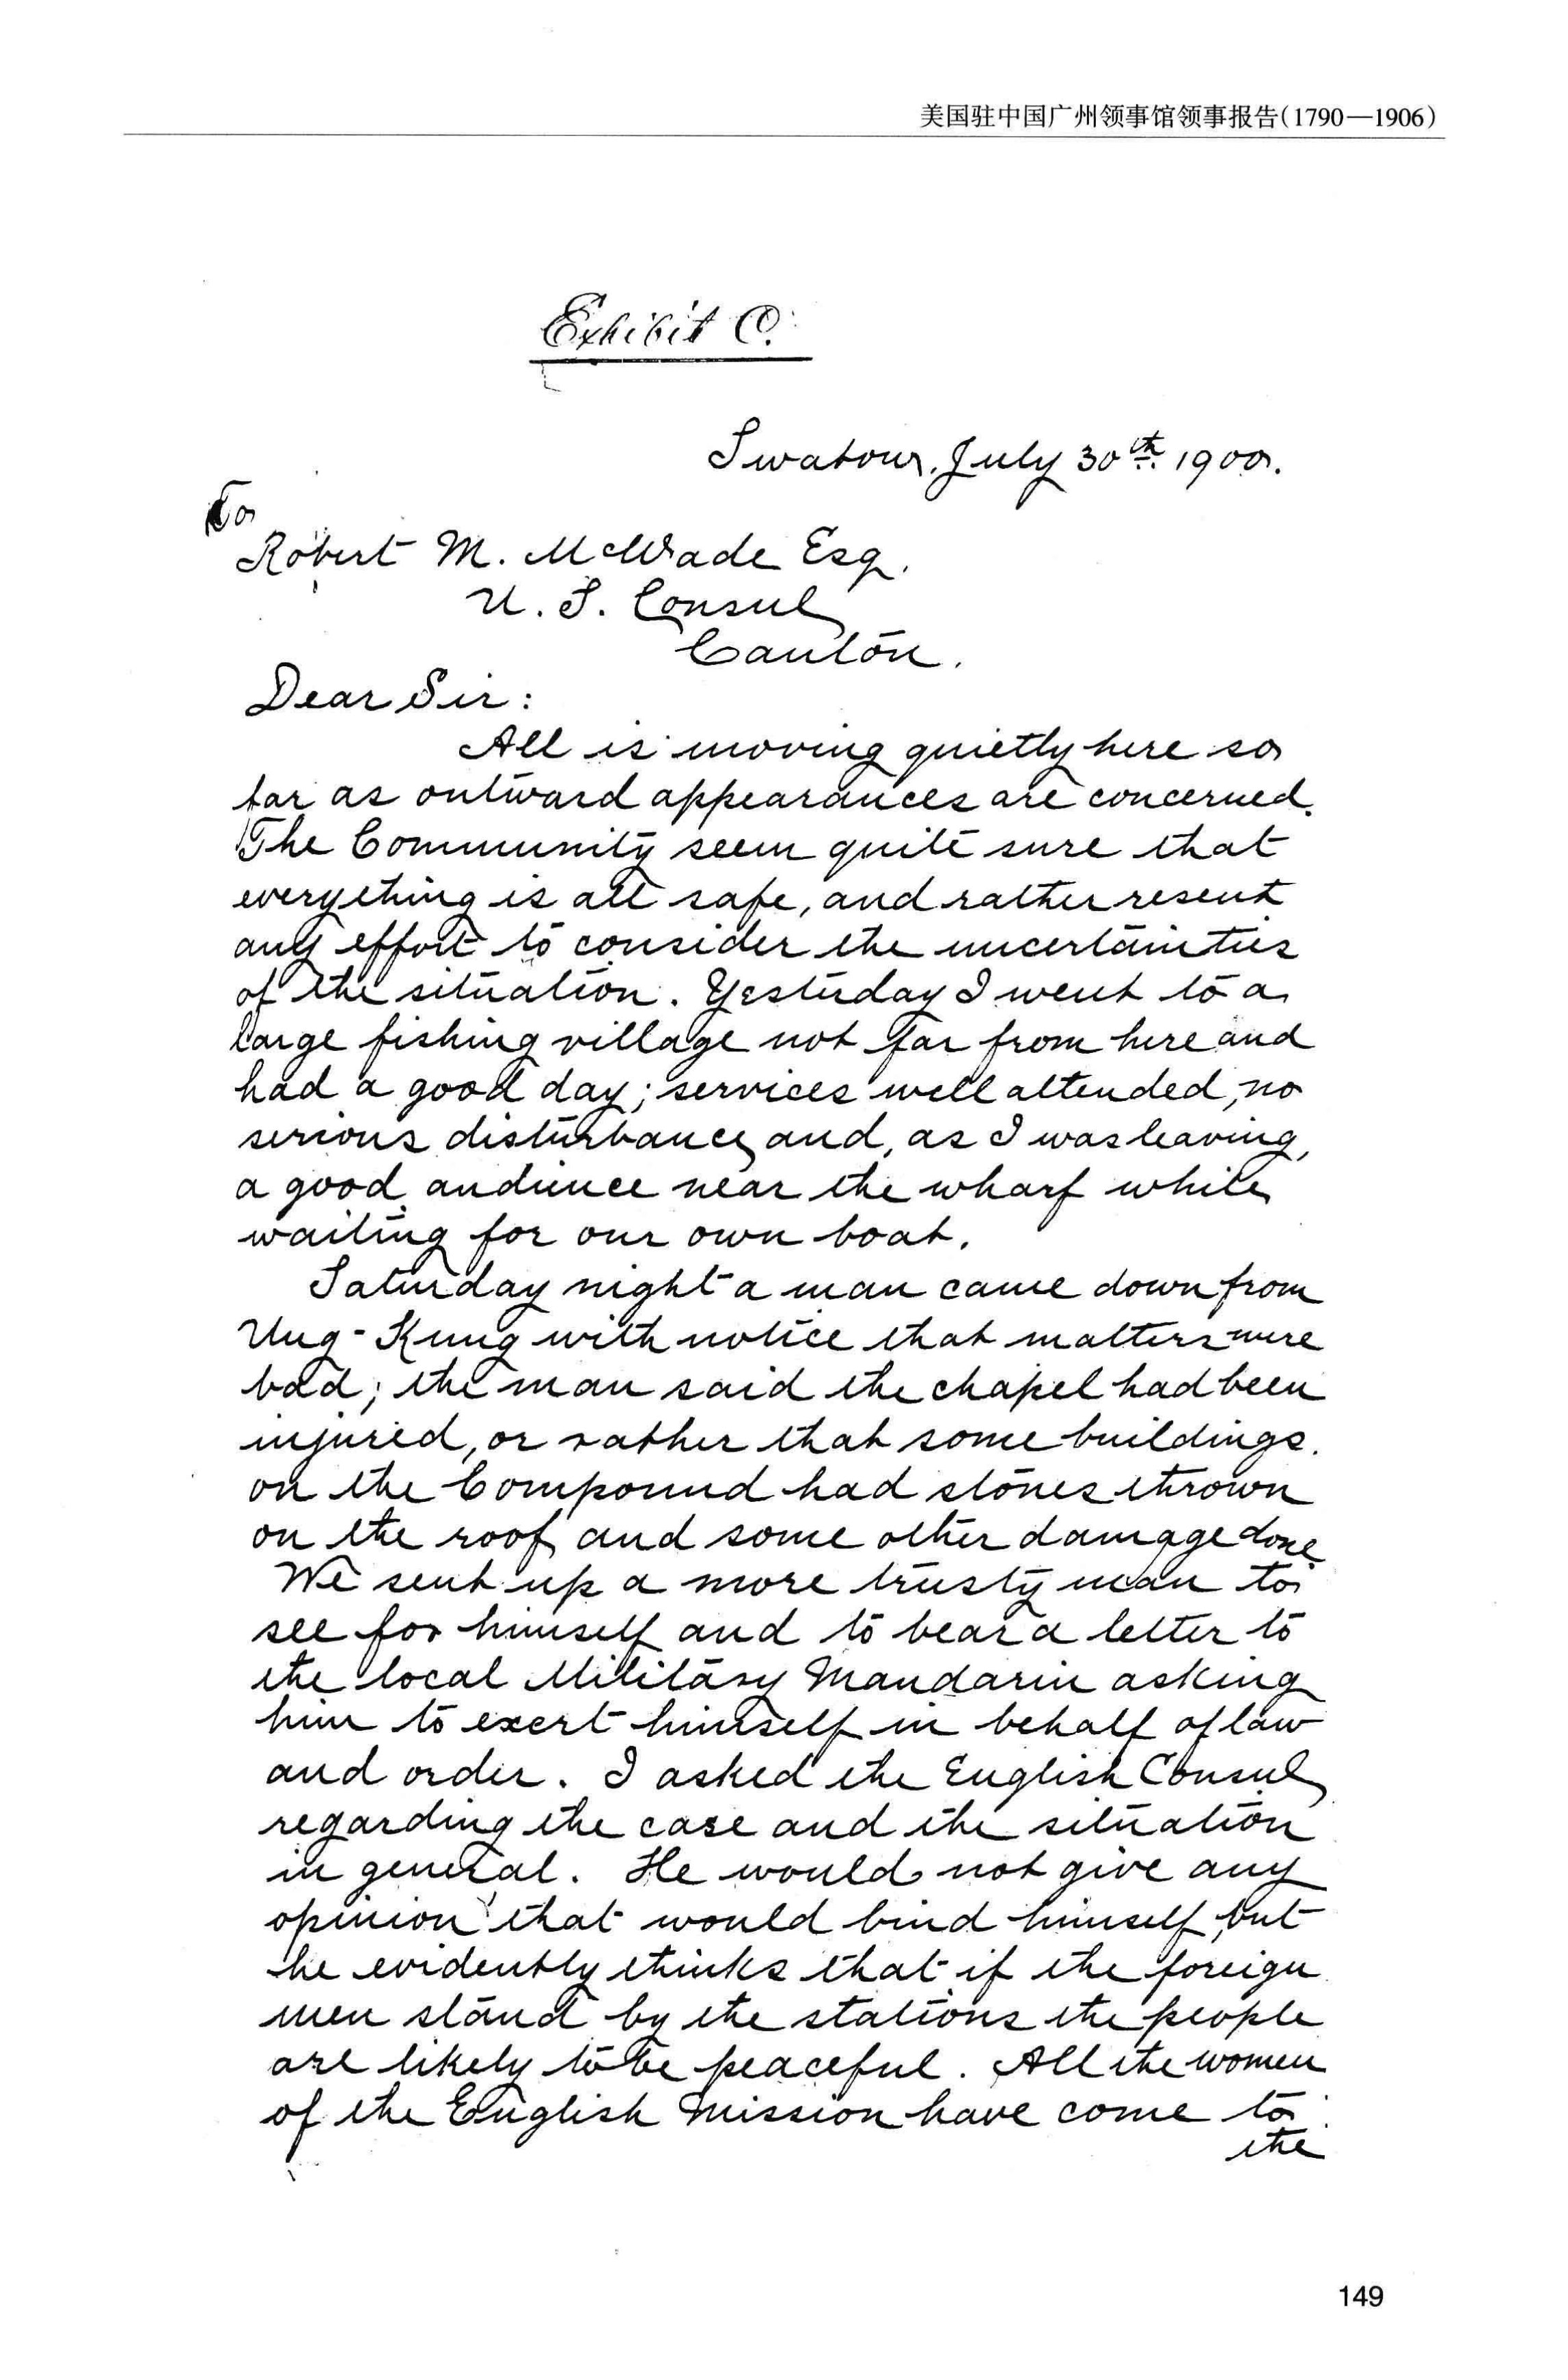 美国驻中国广州领事馆领事报告(1790—1906)
Exhibit C.
Swatow, July 30th. 1900.
To
Robert M. McWade Esq.
U. S. Consul
Canton.
Dear Sir:
All is moving quietly here so
far as outward appearances are concerned.
The Community seem quite sure that
everything is all safe, and rather resent
any effort to consider the uncertainties
of the situation. Yesterday I went to a
large fishing village not far from here and
had a good day; services well attended, no
serious disturbance, and, as I was leaving,
a good audience near the wharf while
waiting for our own boat.
Saturday night a man came down from
Ung-Kung with notice that matters were
bad; the man said the chapel had been
injured, or rather that some buildings
on the Compound had stones thrown
on the roof and some other damage done.
We sent up a more trusty man to
see for himself and to bear a letter to
the local Military Mandarin asking
him to exert himself in behalf of law
and order. I asked the English Consul
regarding the case and the situation
in general. He would not give any
opinion that would bind himself, but
he evidently thinks that if the foreign
men stand by the stations the people
are likely to be peaceful. All the women
of the English Mission have come to
the
149